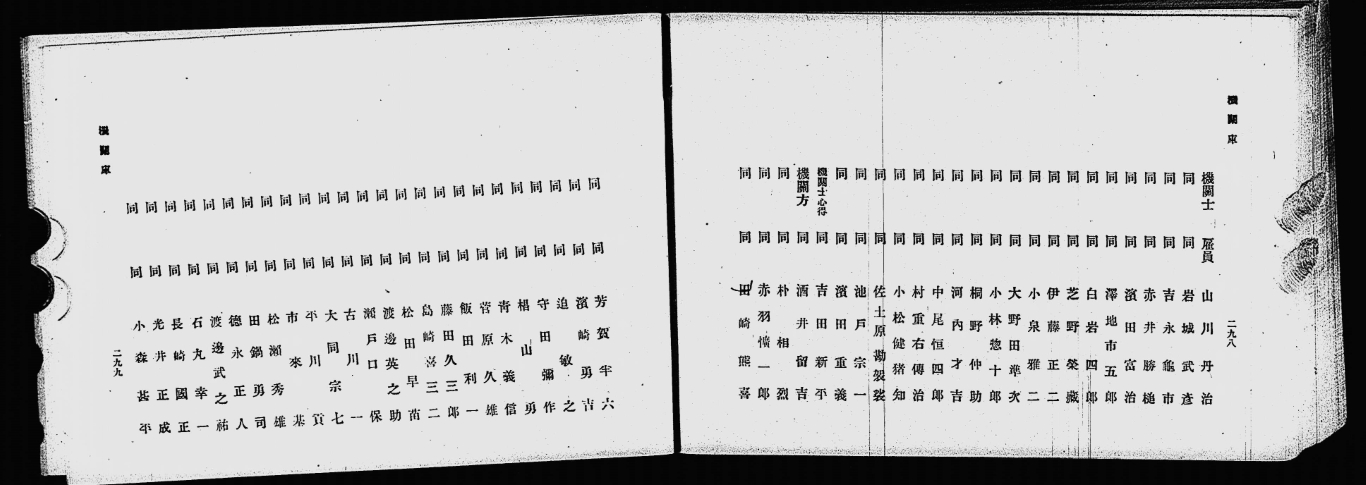 機關庫
二九八
機關士 雇員 山川丹治
同 同 岩城武彦
同 同 吉永龜市
同 同 赤井勝槌
同 同 濱田富治
同 同 澤地市五郎
同 同 白岩四郎
同 同 芝野榮藏
同 同 伊藤正二
同 同 小泉雅二
同 同 大野田準次
同 同 小林惣十郎
同 同 桐野仲助
同 同 河内才吉
同 同 中尾恒四郎
同 同 村重右傳治
同 同 小松健猪知
同 同 佐土原勘袈裟
同 同 池戸宗一
同 同 濱田重義
機關士心得 同 吉田新平
機關方 同 酒井留吉
同 同 朴相烈
同 同 赤羽憤一郎
同 同 田崎熊喜
同 同 芳賀半六
同 同 濱崎勇吉
同 同 迫敏之
同 同 守田彌作
同 同 椙山勇
同 同 青木義信
同 同 菅原久雄
同 同 飯田利一
同 同 藤田久三郎
同 同 島崎喜三二
同 同 松田早苗
同 同 渡邊英之助
同 同 瀬戸口保
同 同 古川一
同 同 大同宗七
同 同 平川貢
同 同 市來基
同 同 松瀬秀雄
同 同 田鍋勇司
同 同 德永正人
同 同 渡邊武之祐
同 同 石丸幸一
同 同 長崎國正
同 同 光井正成
同 同 小森甚平
機關庫
二九九